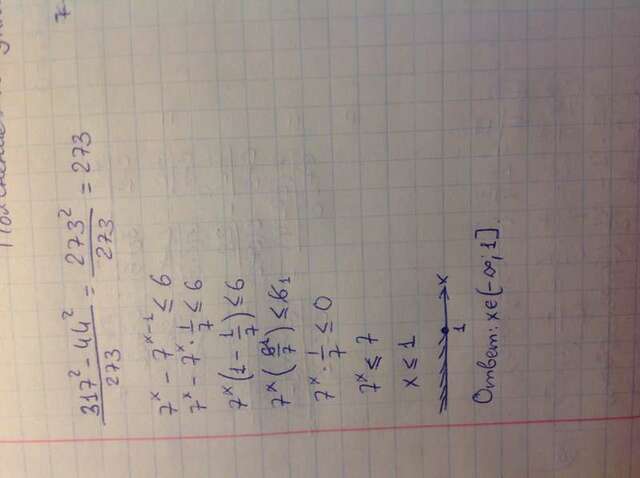 317² - 44² / 273 = 273² / 273 = 273
7
7ˣ - 7ˣ⁻¹ ≤ 6
7ˣ - 7ˣ · 1/7 ≤ 6
7ˣ(1 - 1/7) ≤ 6
7ˣ(6¹/7) ≤ 6₁
7ˣ · 1/7 ≤ 0
7ˣ ≤ 7
x ≤ 1
x
1
Ответ: x ∈ (-∞; 1].